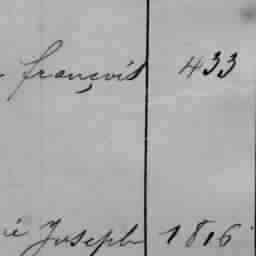 françois 433
Joseph 1816